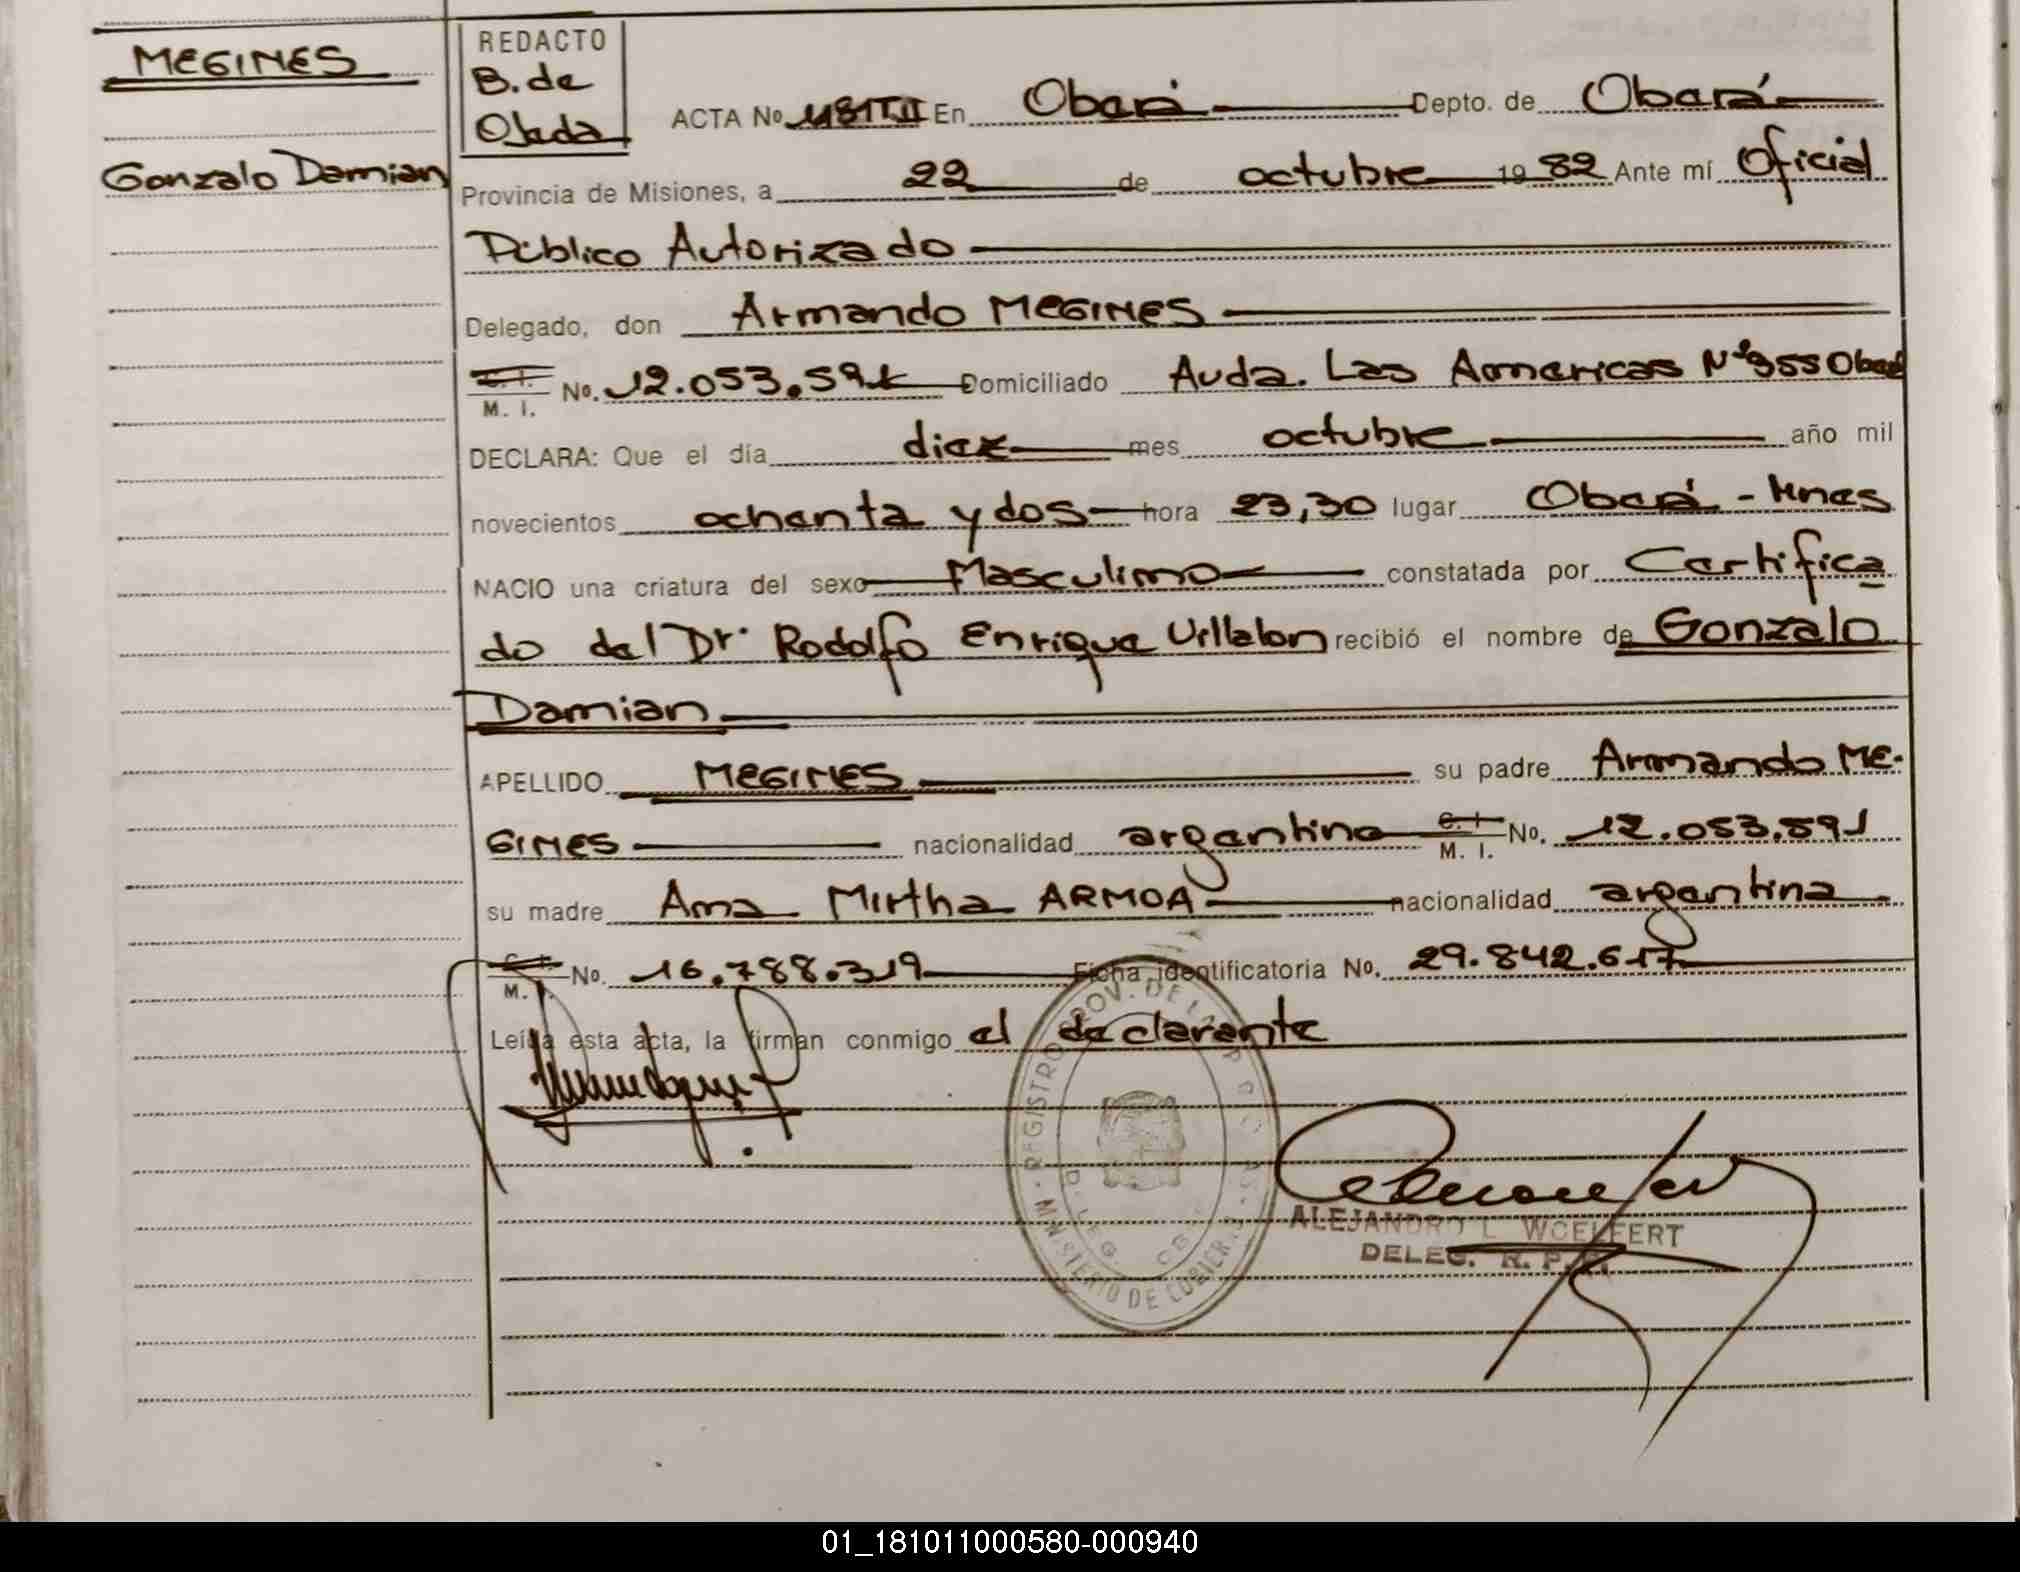 MEGINES
Gonzalo Damian
REDACTO
B. de
Ojeda
ACTA No 1181TII En Oberá Depto. de Oberá
Provincia de Misiones, a 22 de octubre 1982 Ante mí Oficial
Público Autorizado
Delegado, don Armando MEGINES
C. I. M. I. No. 12.053.591 Domiciliado Avda. Las Americas Nº 955 Oberá
DECLARA: Que el día diez mes octubre año mil
novecientos ochenta y dos hora 23,30 lugar Oberá - Mnes
NACIO una criatura del sexo Masculino constatada por Certifica
do del Dr. Rodolfo Enrique Villalon recibió el nombre de Gonzalo
Damian
APELLIDO MEGINES su padre Armando ME-
GINES nacionalidad argentina C. I. M. I. No. 12.053.591
su madre Ana Mirtha ARMOA nacionalidad argentina
C. I. M. I. No. 16.788.319 Ficha identificatoria No. 29.842.617
Leída esta acta, la firman conmigo el declarante
REGISTRO PROV. DE LAS PERSONAS
MINISTERIO DE GOBIERNO
DELEG.
ALEJANDRO L. WOELFERT
DELEG. R. P.
01_181011000580-000940